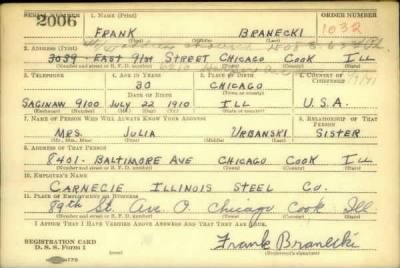 SERIAL NUMBER 1. NAME (Print) ORDER NUMBER
2006 FRANK BRANECKI 1032
(First) (Middle) (Last)
2. ADDRESS (Print)
3039 - EAST 91st STREET CHICAGO COOK ILL
(Number and street or R. F. D. number) (Town) (County) (State)
3. TELEPHONE 4. AGE IN YEARS 5. PLACE OF BIRTH 6. COUNTRY OF CITIZENSHIP
30 CHICAGO
DATE OF BIRTH (Town or county)
SAGINAW 9100 JULY 22 1910 ILL U.S.A.
(Exchange) (Number) (Mo.) (Day) (Yr.) (State or country)
7. NAME OF PERSON WHO WILL ALWAYS KNOW YOUR ADDRESS 8. RELATIONSHIP OF THAT PERSON
MRS. JULIA URBANSKI SISTER
(Mr., Mrs., Miss) (First) (Middle) (Last)
9. ADDRESS OF THAT PERSON
8401 - BALTIMORE AVE CHICAGO COOK ILL
(Number and street or R. F. D. number) (Town) (County) (State)
10. EMPLOYER'S NAME
CARNEGIE ILLINOIS STEEL Co.
11. PLACE OF EMPLOYMENT OR BUSINESS
89th St. Ave O. Chicago Cook Ill
(Number and street or R. F. D. number) (Town) (County) (State)
I AFFIRM THAT I HAVE VERIFIED ABOVE ANSWERS AND THAT THEY ARE TRUE.
REGISTRATION CARD
D. S. S. Form 1 Frank Branecki